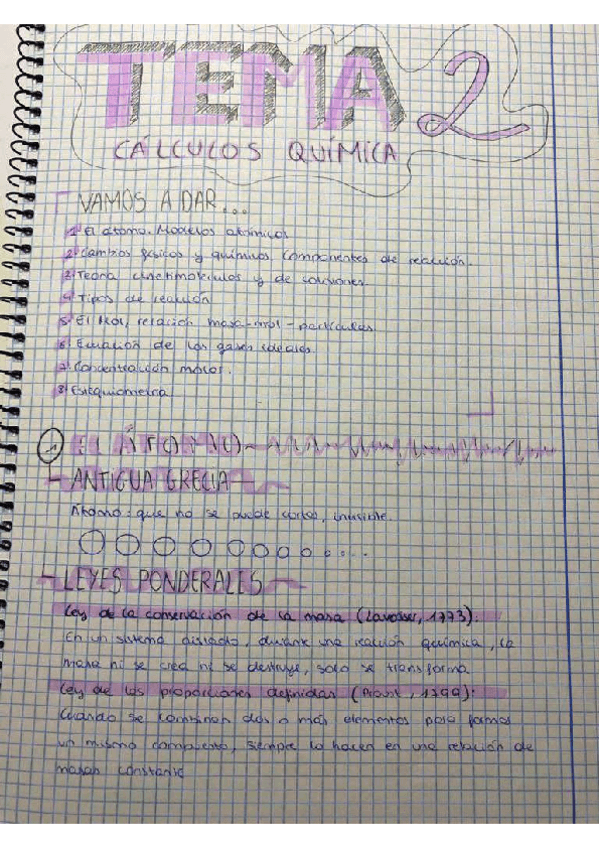 TEMA 2
CÁLCULOS QUÍMICA
VAMOS A DAR...
1. El átomo. Modelos atómicos
2. Cambios físicos y químicos. Componentes de reacción.
3. Teoría y de colisiones.
4. Tipos de reacción
5. El Mol, relación masa-mol-partículas
6. Ecuación de los gases ideales.
7. Concentración molar.
8. Estequiometría
1 EL ÁTOMO
- ANTIGUA GRECIA -
Átomo: que no se puede cortar,
- LEYES PONDERALES
Ley de la conservación de la masa (Lavoisier, 1773):
En un sistema aislado, durante una reacción química, la
masa ni se crea ni se destruye, solo se transforma
Ley de las proporciones definidas (Proust, 1799):
Cuando se combinan dos o más elementos para formar
un mismo compuesto, siempre lo hacen en una relación de
masas constante